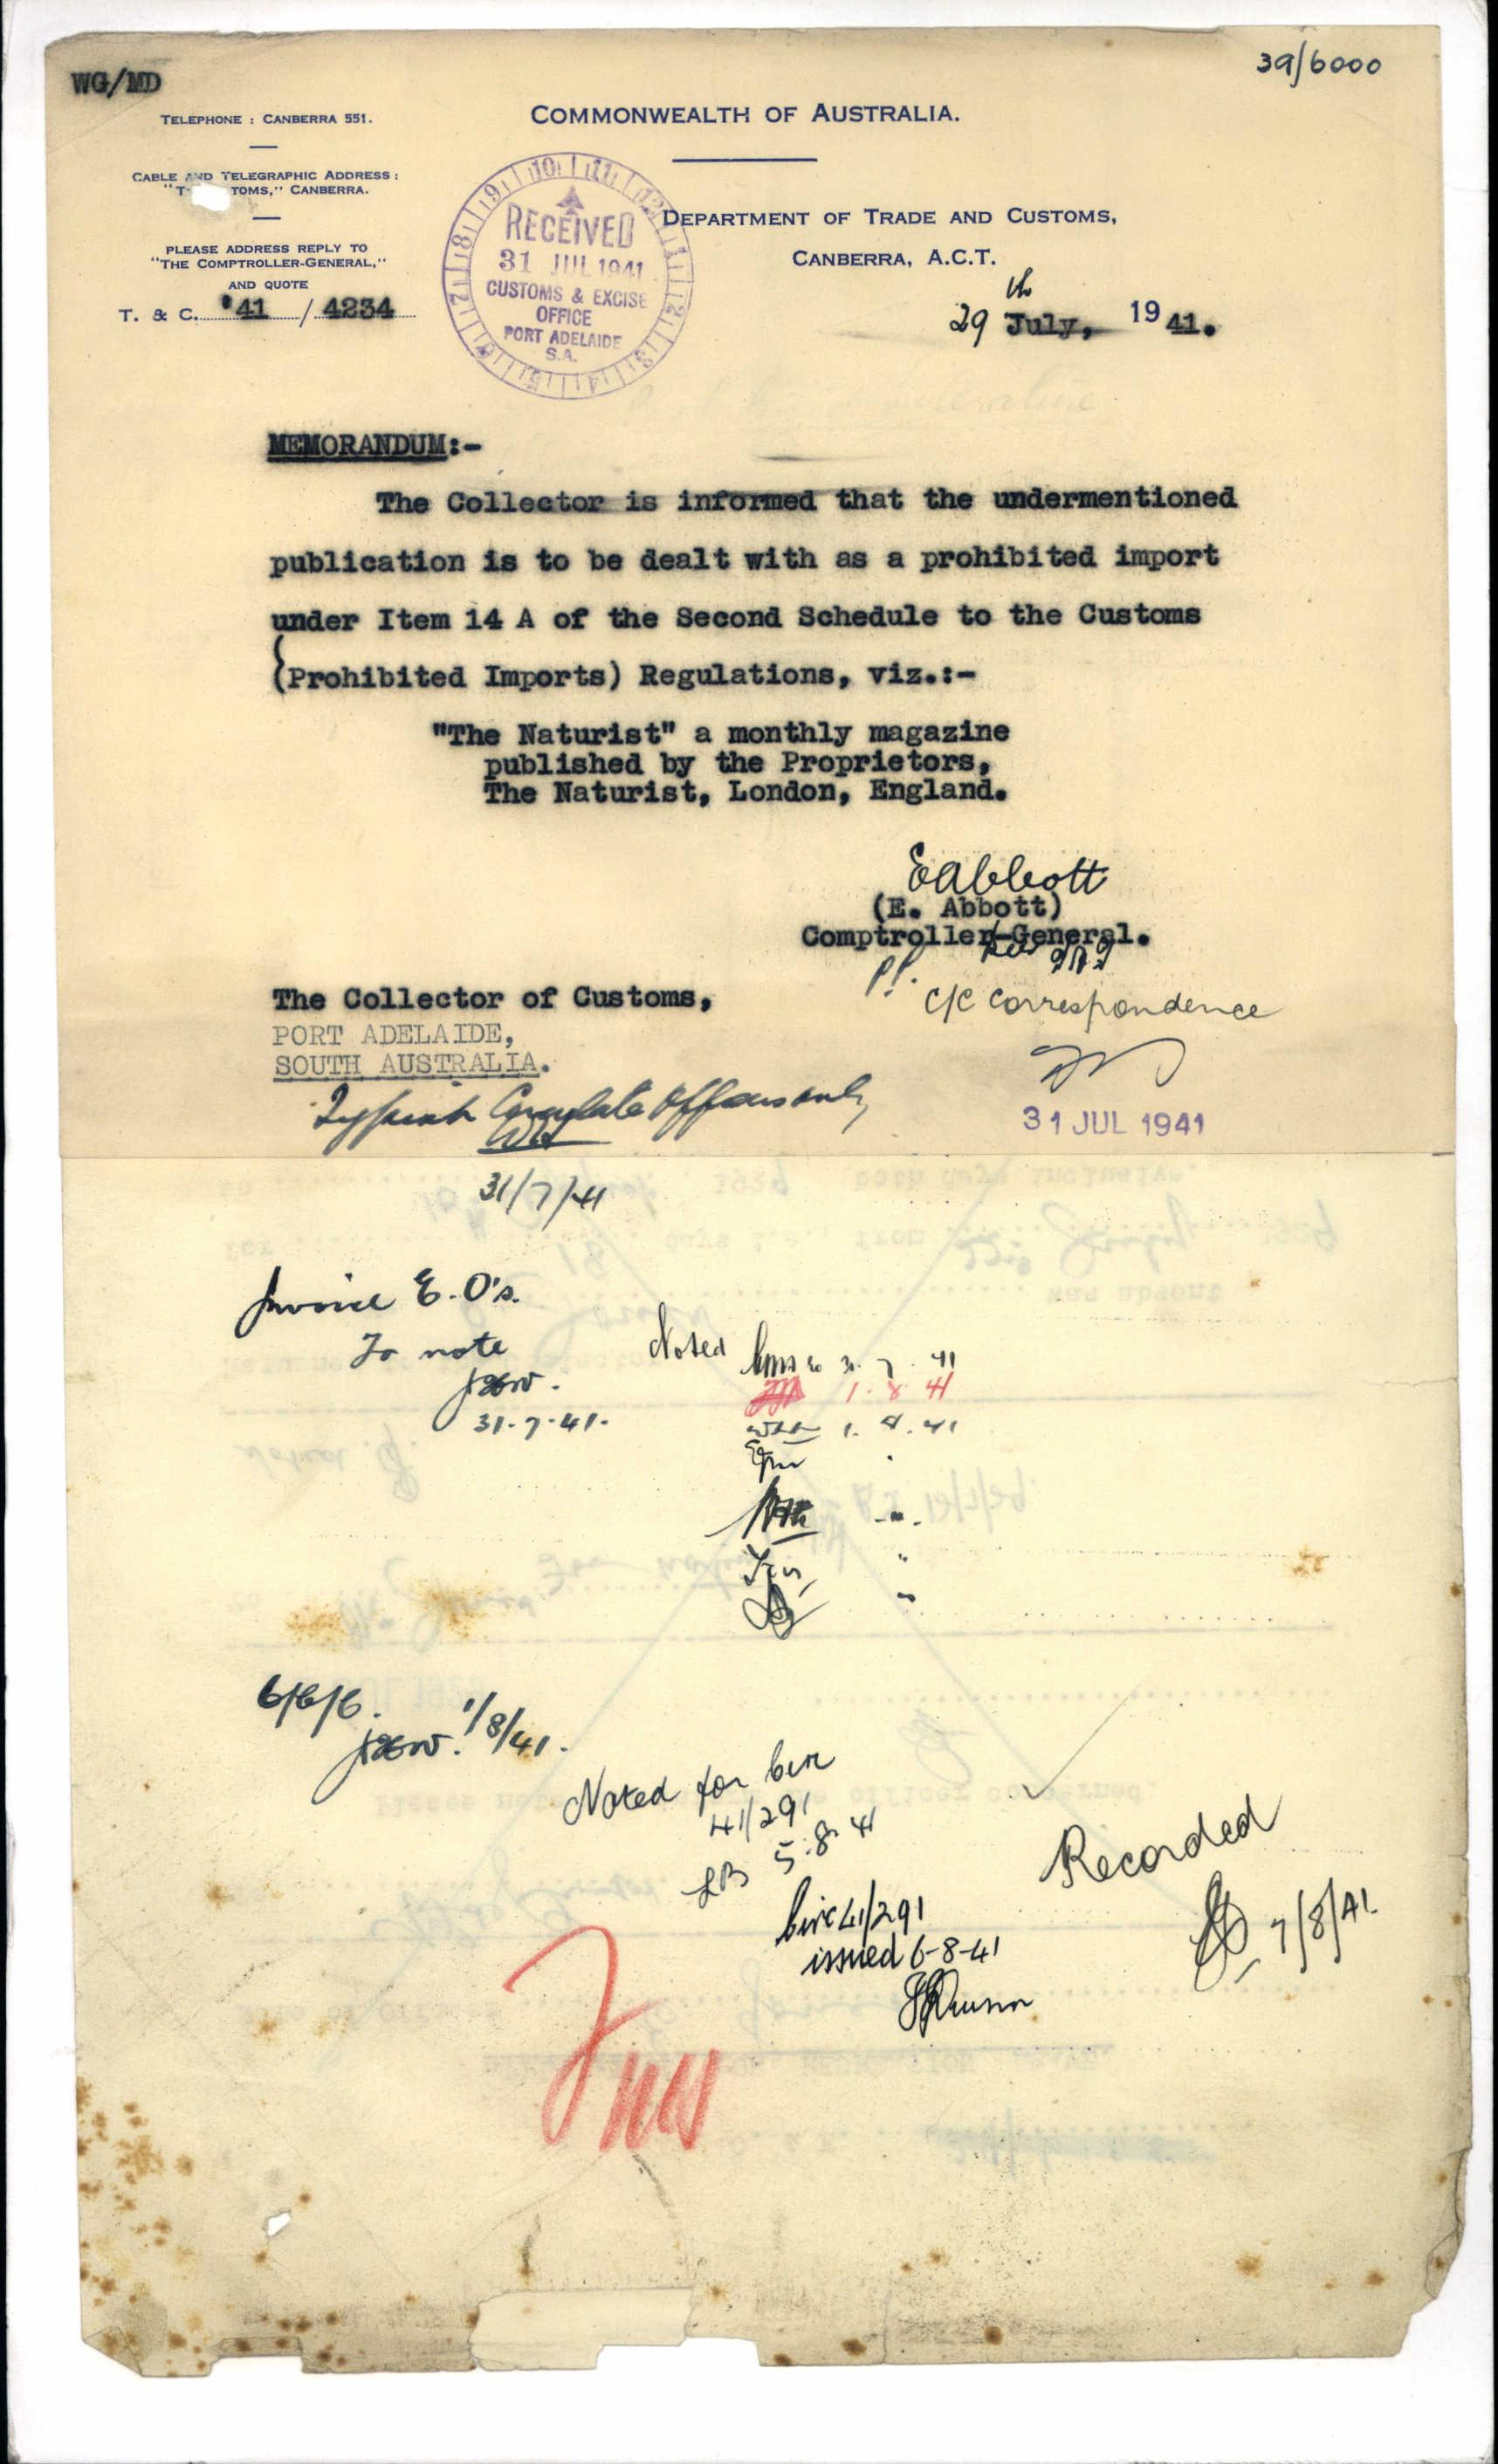 WG/MD
39/6000
TELEPHONE : CANBERRA 551.
COMMONWEALTH OF AUSTRALIA.
CABLE AND TELEGRAPHIC ADDRESS :
TOMS," CANBERRA.
PLEASE ADDRESS REPLY TO
"THE COMPTROLLER-GENERAL,"
AND QUOTE
T. & C. 41 / 4234
RECEIVED
31 JUL 1941
CUSTOMS & EXCISE
OFFICE
PORT ADELAIDE
S.A.
DEPARTMENT OF TRADE AND CUSTOMS,
CANBERRA, A.C.T.
29th July, 1941.
MEMORANDUM:-
The Collector is informed that the undermentioned
publication is to be dealt with as a prohibited import
under Item 14 A of the Second Schedule to the Customs
(Prohibited Imports) Regulations, viz.:-
"The Naturist" a monthly magazine
published by the Proprietors,
The Naturist, London, England.
EAbbott
(E. Abbott)
Comptroller-General.
C/C Correspondence
The Collector of Customs,
PORT ADELAIDE,
SOUTH AUSTRALIA.
31 JUL 1941
31/7/41
Invoice E.O's.
To note
31-7-41.
Noted
7. 41
1. 8. 41
1. 8. 41
6/6/6.
1/8/41.
Noted for Circ
41/291
5.8.41
Circ 41/291
issued 6-8-41
Recorded
7/8/41